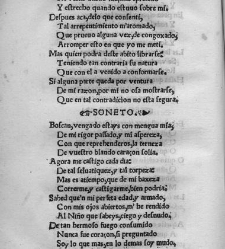 y estrecho quando estuuo sobre mi.
Despues aca, de lo que consenti,
Tal arrepentimiento m'à tomado,
Que prueuo alguna vez, de congoxado,
Arromper esto en que yo me metí.
Mas quien podra deste abito librarse?
Teniendo tan contraria su natura
Que con el a venido a conformarse.
Si alguna parte queda por ventura
De mi razon, por mi no osa mostrarse,
Que en tal contradicion no esta segura.
SONETO.
Boscan, vengado estays con mengua mia,
De mi rigor passado, y mi aspereza,
Con que reprehenderos, la terneza
De vuestro blando coraçon solia.
Agora me castigo cada dia:
De tal seluatiquez, y tal torpeza:
Mas es a tiempo, que de mi baxeza
Correrme, y castigarme, bien podria:
Sabed que'n mi perfeta edad, y armado,
Con mis ojos abiertos, m'he rendido
Al Niño que sabeys, ciego y desnudo.
De tan hermoso fuego consumido
Nunca fue coraçon, si preguntado
Soy lo que mas, en lo demas soy mudo,